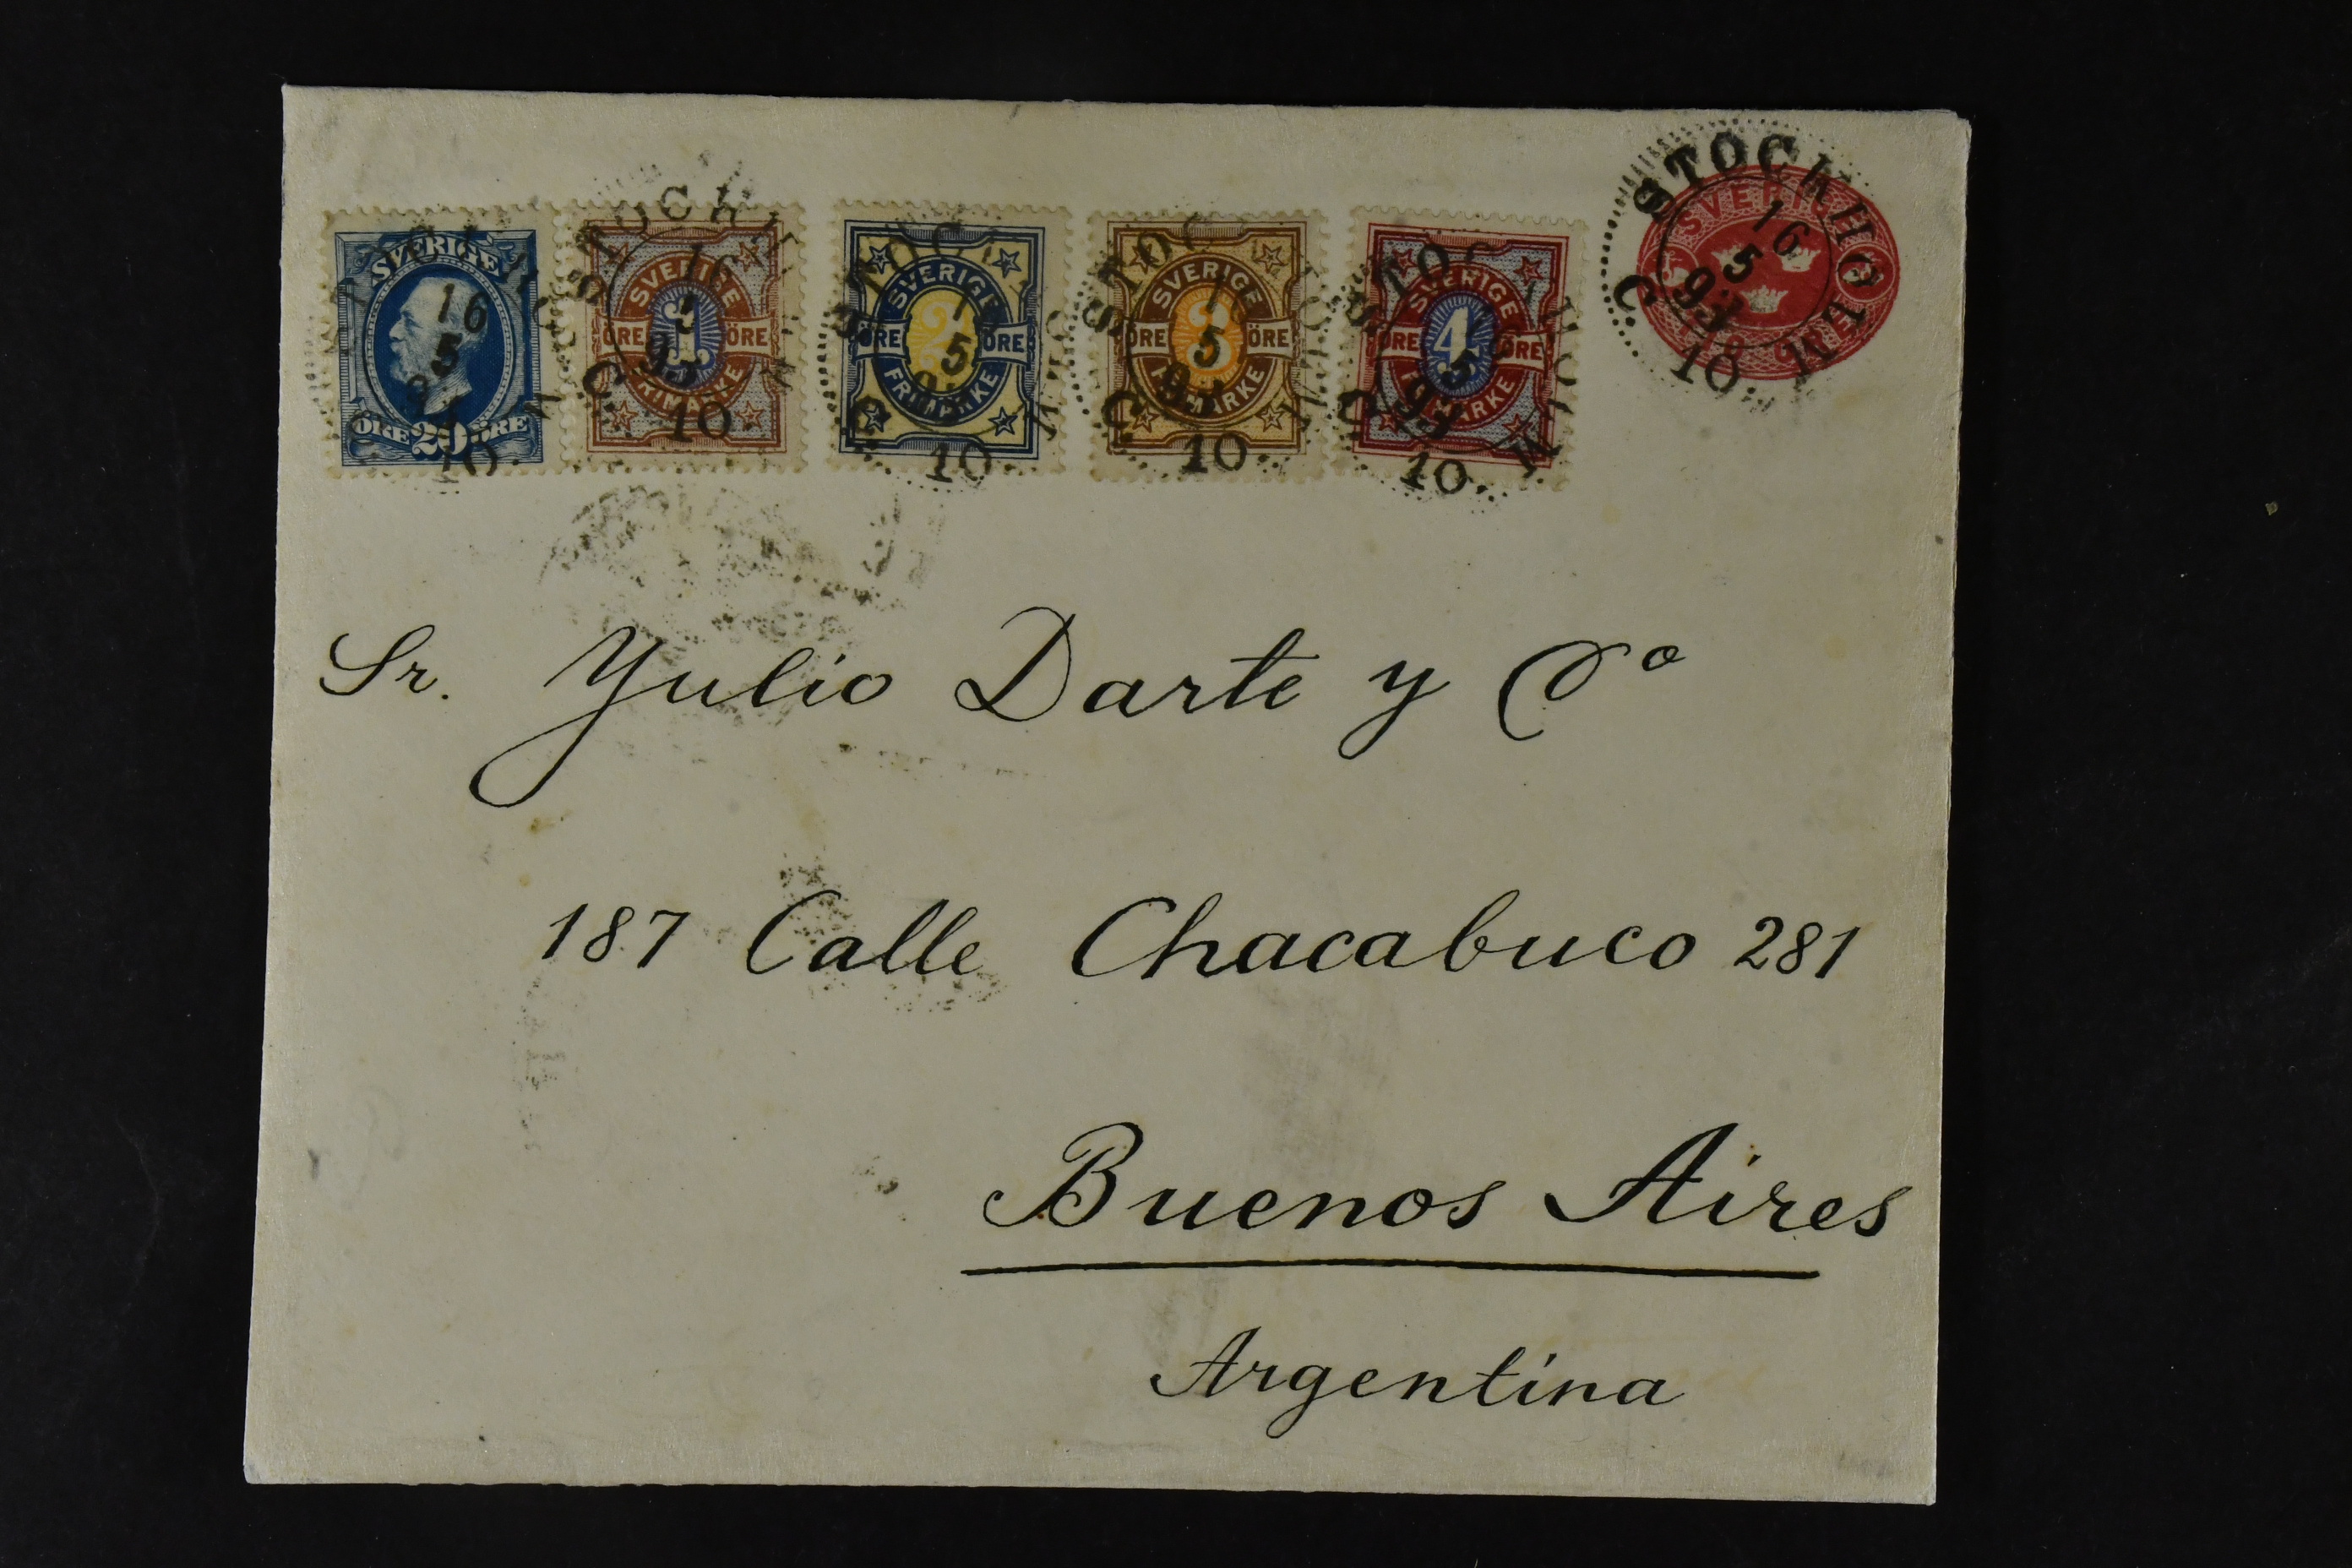 SVERIGE
ÖRE 20 ÖRE
SVERIGE
ÖRE 1 ÖRE
FRIMÄRKE
SVERIGE
ÖRE 2 ÖRE
FRIMÄRKE
SVERIGE
ÖRE 3 ÖRE
FRIMÄRKE
SVERIGE
ÖRE 4 ÖRE
FRIMÄRKE
SVERIGE
STOCKHOLM
16
5
93
C. 10.
Sr. Yulio Darte y Co
187 Calle Chacabuco 281
Buenos Aires
Argentina